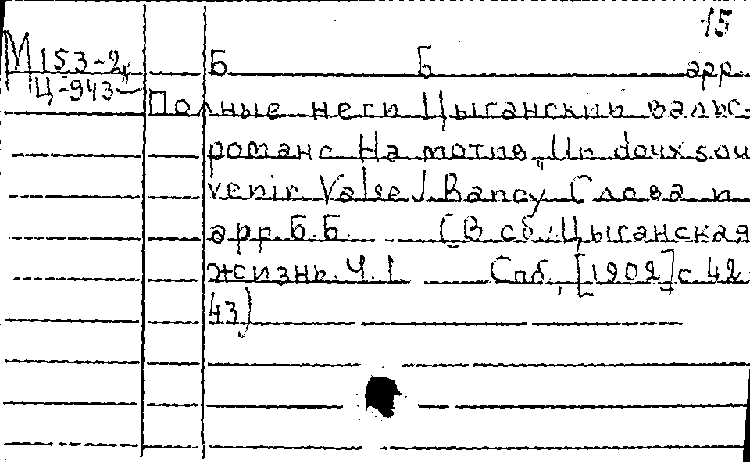 15
М 153-2 Б Б арр.
Ц-943
Полные неги Цыганский вальс-
романс На мотив „Un doux sou
venir Valse J. Bancy Слова и
арр. Б. Б. (В сб.: Цыганская
жизнь. Ч. I Спб., [1902] с 42-
43)